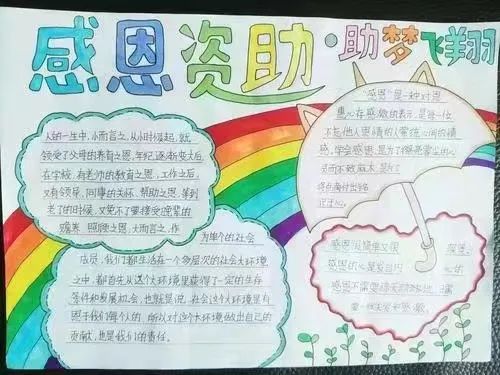 感恩资助·助梦飞翔
人的一生中，小而言之，从小时候起，就
领受了父母的养育之恩，年纪逐渐变大后，
在学校，有老师的教育之恩，工作之后，
又有领导、同事的关怀、帮助之恩，等到
老了的时候，又免不了要接受晚辈的
赡养、照顾之恩，大而言之，作
为单个的社会
成员，我们都生活在一个多层次的社会大环境
之中，都首先从这个大环境里获得了一定的生存
条件和发展机会，也就是说，社会这个大环境是有
恩于我们每个人的，所以对这个大环境做出自己的
贡献，也是我们的责任。
"感恩"是一种对恩
惠心存感激的表示，是每一位
不忘他人恩情的人萦绕心间的情
感。学会感恩，是为了
而不致麻木，是为了
感恩很简单又很
感恩的心是发自内 心的
感恩不需要